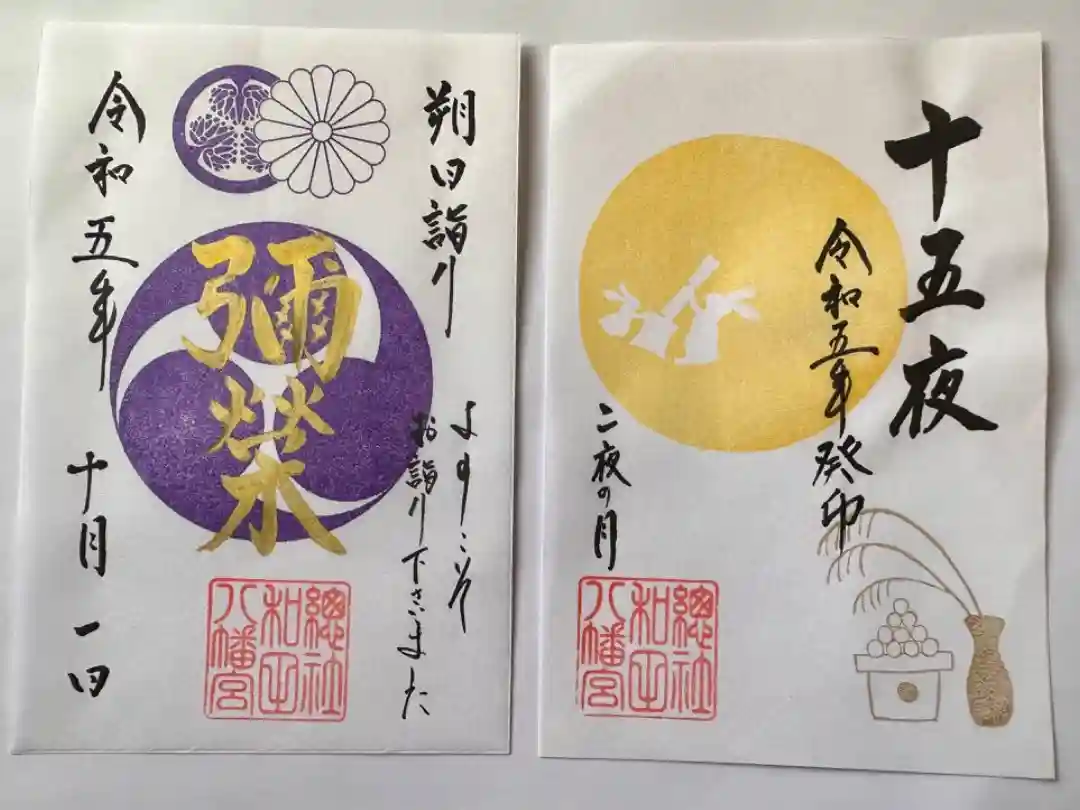 朔日詣り
ようこそ
お詣り下さいました
彌榮
令和五年
十月一日
總社
和田
八幡宮
十五夜
令和五年癸卯
二夜の月
總社
和田
八幡宮